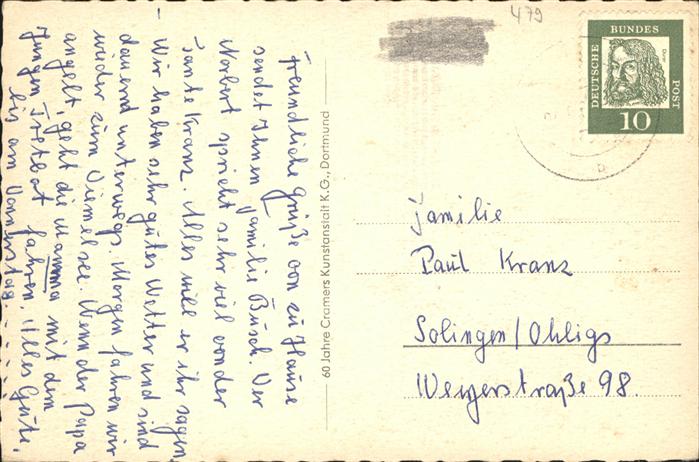 Freundliche Grüße von zu Hause
sendet Ihnen Familie Busch. Der
Norbert spricht sehr viel von der
Tante Kranz. Alles will er ihr sagen.
– Wir haben sehr gutes Wetter und sind
dauernd unterwegs. Morgen fahren wir
wieder zum Diemelsee. Wenn der Papa
angelt, geht die Mamma mit dem
Jungen Tretboot fahren. Alles Gute,
bis am Donnerstag.
60 Jahre Cramers Kunstanstalt K.G., Dortmund
479
DEUTSCHE BUNDES POST
Dürer
10
b
Familie
Paul Kranz
Solingen/Ohligs
Weyerstraße 98.